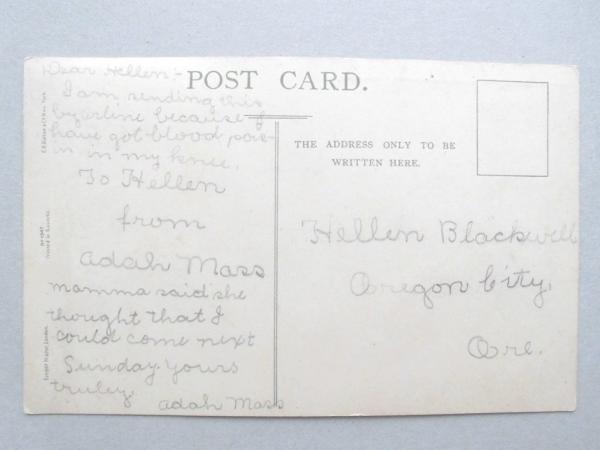 Dear Hellen:-
I am sending this
by
because I
have got blood pois-
in in my knee.
To Hellen
from
adah Mass
mamma said she
thought that I
could come next
Sunday. Yours
truley,
adah Mass
POST CARD.
THE ADDRESS ONLY TO BE
WRITTEN HERE.
Hellen Blackwell
Oregon City,
Ore.